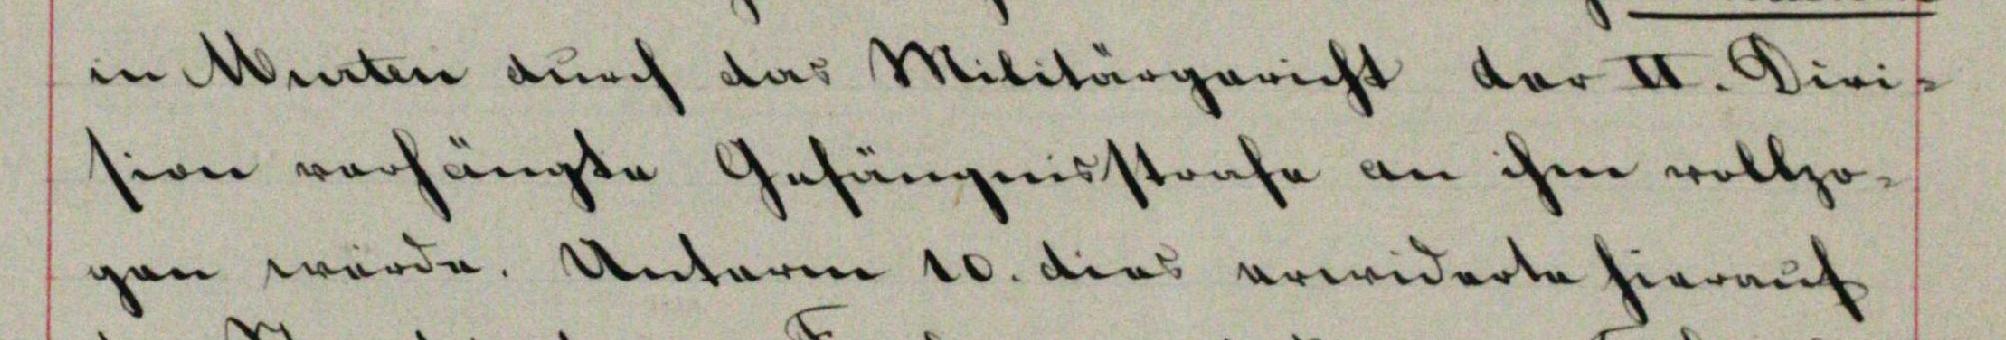 in Murten durch das Militärgericht der II. Divi-
sion verhängte Gefängnisstrafe an ihm vollzo-
gen werde. Unterm 10. dies erwiderte hierauf